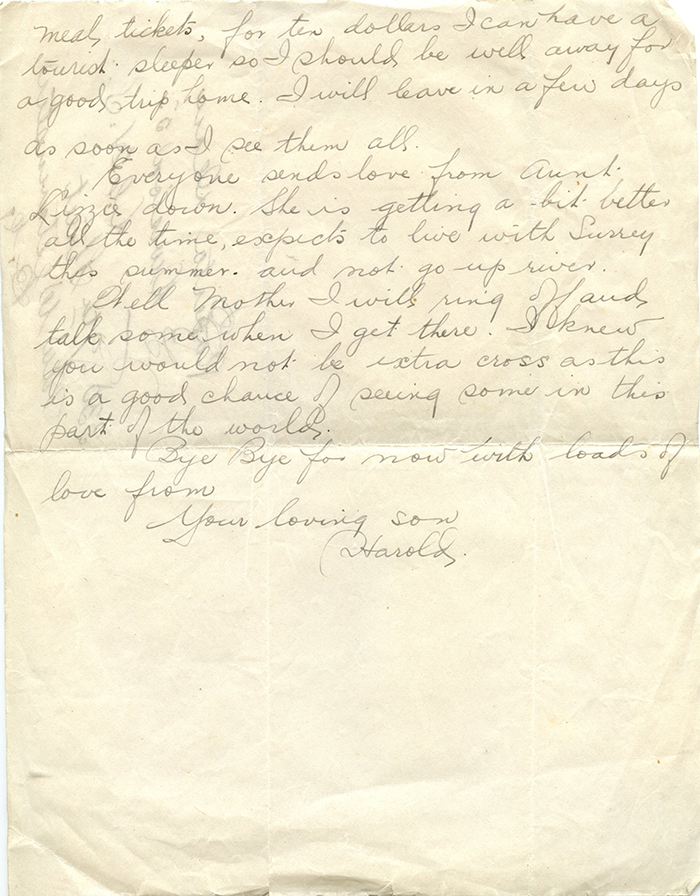 meal, tickets, for ten dollars I can have a
tourist sleeper so I should be well away for
a good trip home. I will leave in a few days
as soon as I see them all.
Everyone sends love from Aunt
Lizzie down. She is getting a bit better
all the time, expects to live with Surrey
this summer. and not go up river.
Well Mother I will ring off and
talk some when I get there. I knew
you would not be extra cross as this
is a good chance of seeing some in this
part of the world.
Bye Bye for now with loads of
love from
Your loving son
Harold.